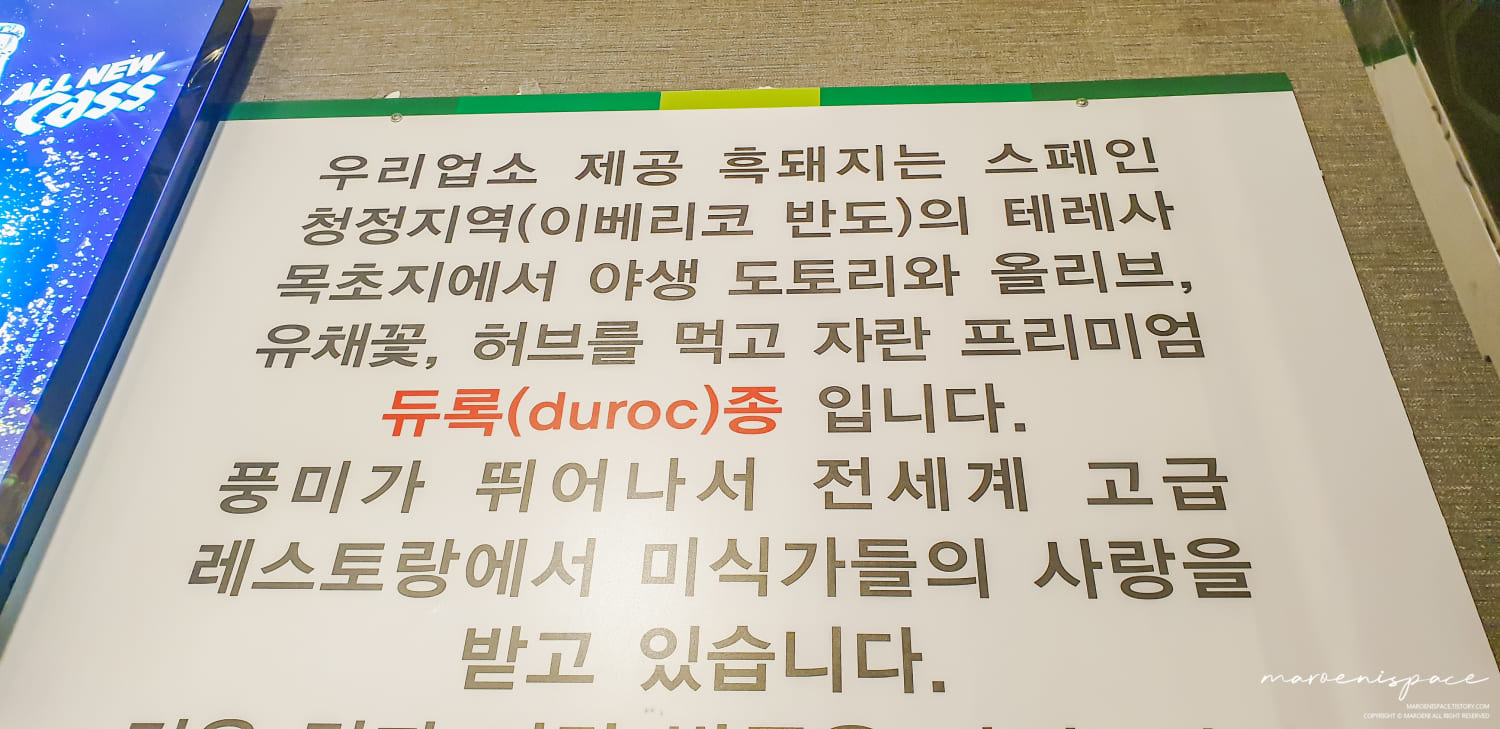 ALL NEW
Cass
우리업소 제공 흑돼지는 스페인
청정지역(이베리코 반도)의 테레사
목초지에서 야생 도토리와 올리브,
유채꽃, 허브를 먹고 자란 프리미엄
듀록(duroc)종 입니다.
풍미가 뛰어나서 전세계 고급
레스토랑에서 미식가들의 사랑을
받고 있습니다.
maroenispace
MAROENISPACE.TISTORY.COM
COPYRIGHT © MAROENI ALL RIGHT RESERVED